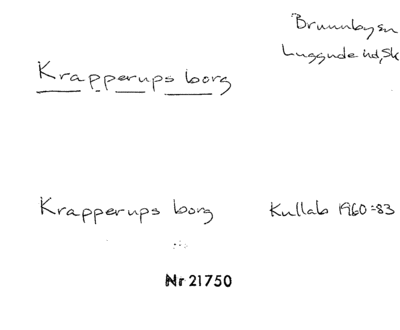 Brunnby sn
Luggude hd, Sk
Krapperups borg
Krapperups borg Kullab 1960:83
Nr 21750